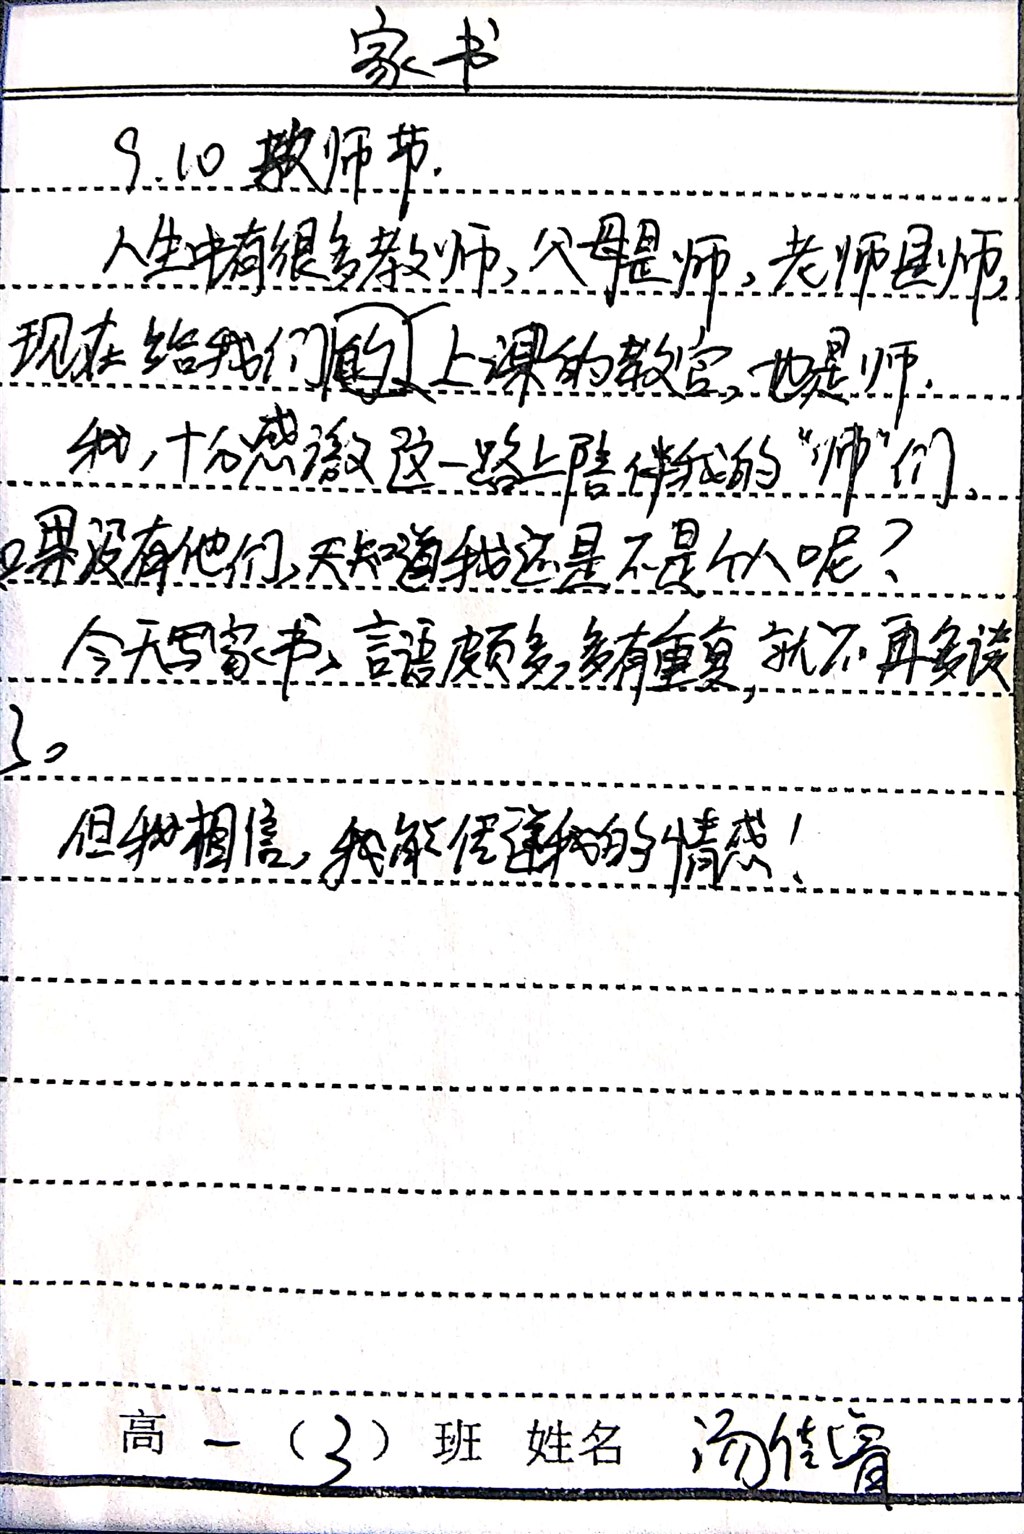 家书
9.10 教师节.
人生中有很多教师,父母是师,老师是师,
现在给我们的上课的教官,也是师.
我,十分感激这一路上陪伴我的“师”们,
如果没有他们,天知道我还是不是个人呢?
今天写家书,言语颇多,多有重复,就不再多谈
了。
但我相信,我能传递我的情感!
高一(3)班 姓名 汤佳睿